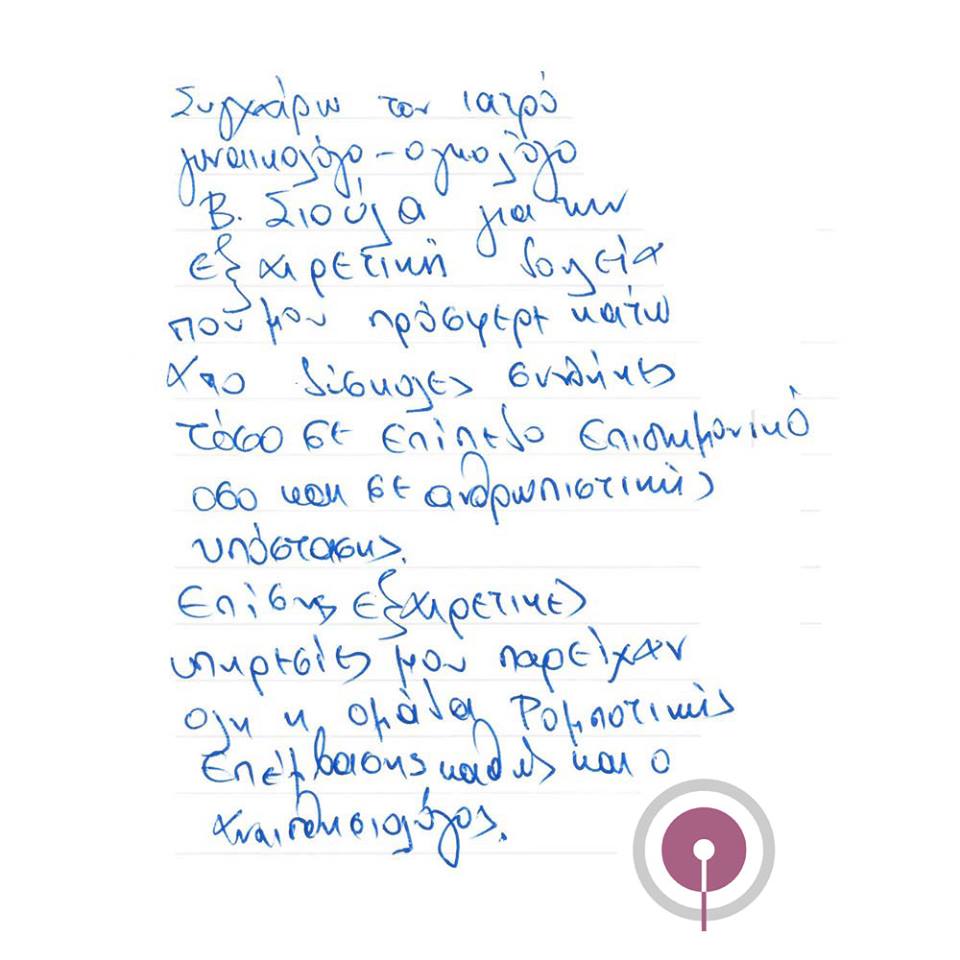 Συγχαίρω τον ιατρό
γυναικολόγο - ογκολόγο
Β. Σιούλα για την
εξαιρετική δουλεία
που μου πρόσφερε κάτω
απο δύσκολες συνθήκες
τόσο σε επίπεδο επιστημονικό
οσο και σε ανθρωπιστικής
υπόστασης.
Επίσης εξαιρετικες
υπηρεσίες μου παρείχαν
ολη η ομάδα Ρομποτικής
Επέμβασης καθώς και ο
αναισθησιολόγος.